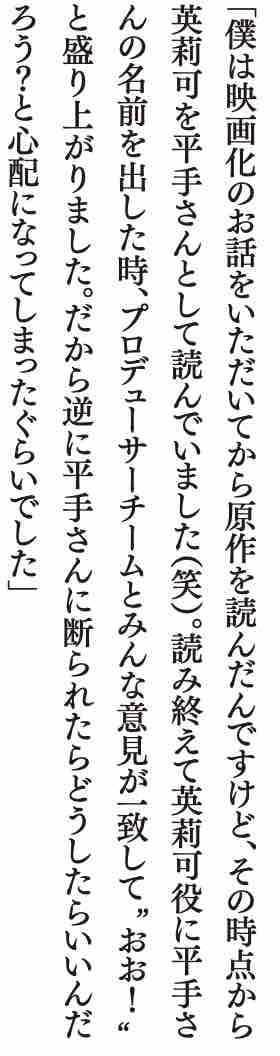 「僕は映画化のお話をいただいてから原作を読んだんですけど、その時点から
英莉可を平手さんとして読んでいました(笑)。読み終えて英莉可役に平手さ
んの名前を出した時、プロデューサーチームとみんな意見が一致して〝おお！〟
と盛り上がりました。だから逆に平手さんに断られたらどうしたらいいんだ
ろう？と心配になってしまったぐらいでした」